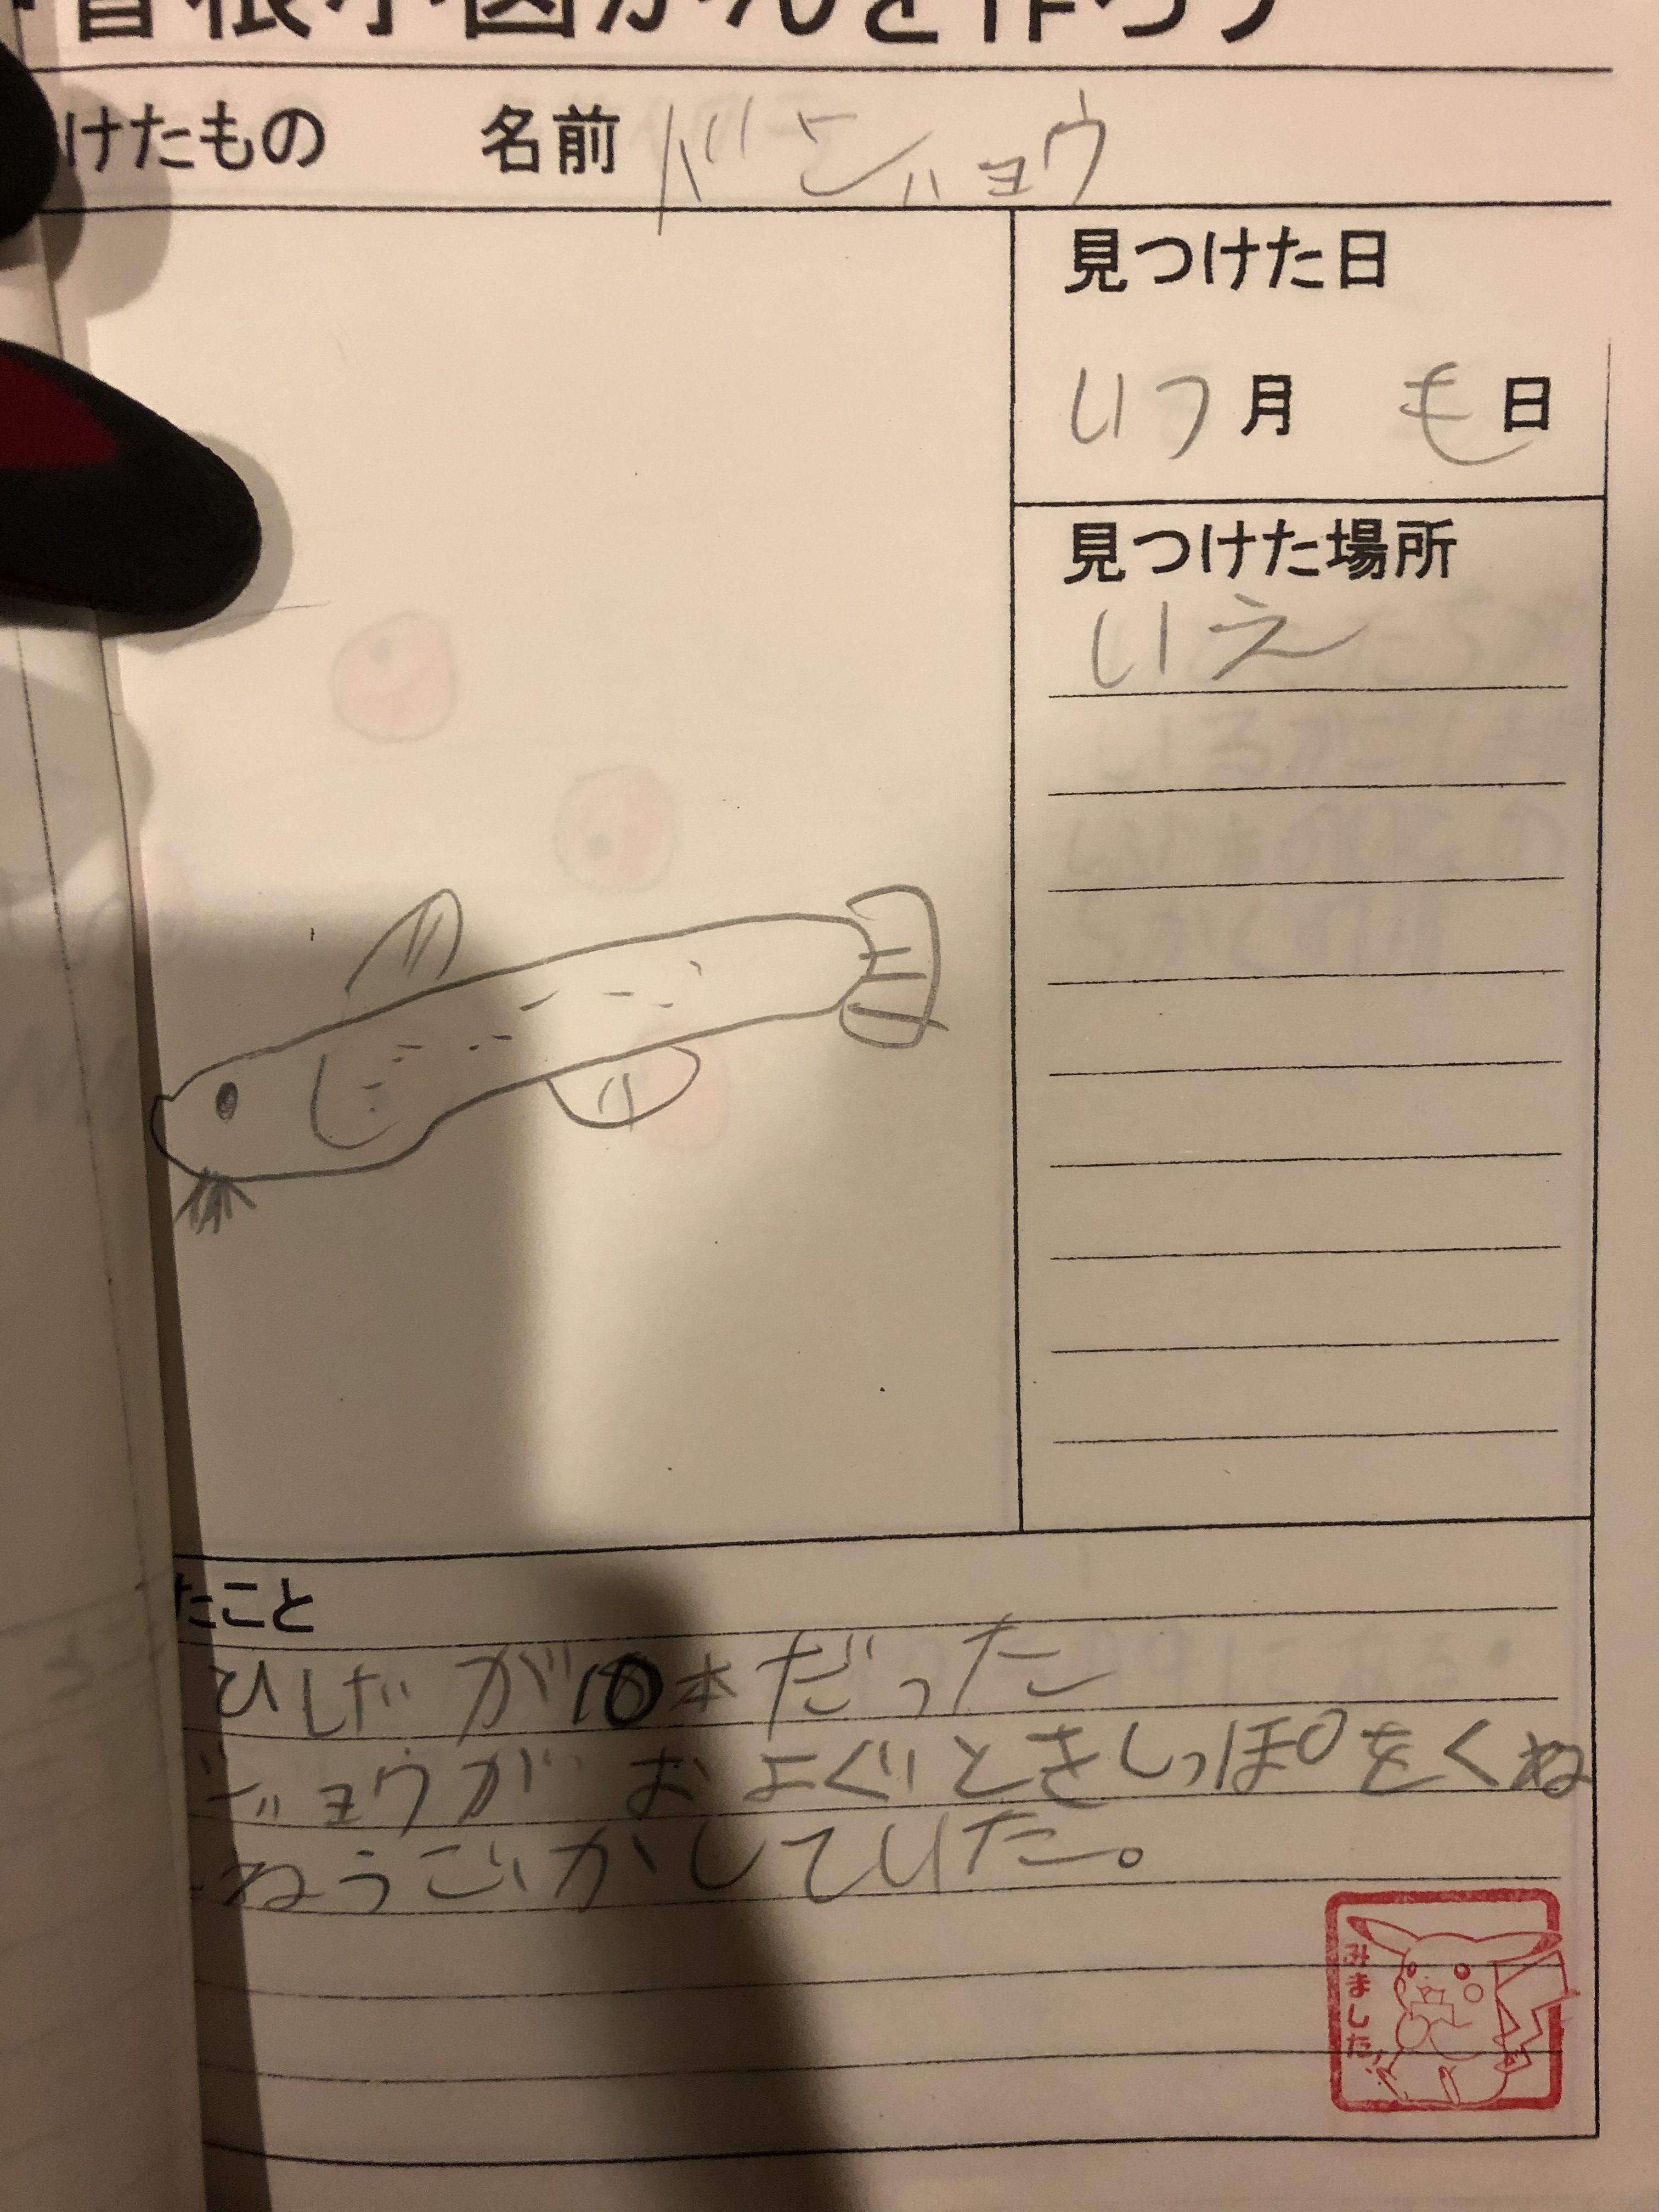 曽根小図かんを作ろう
けたもの　名前 ドジョウ
見つけた日
いつ月 も日
見つけた場所
いえ
たこと
ひげが10本だった
ジョウがおよぐときしっぽをくね
ねうごかしていた。
みました